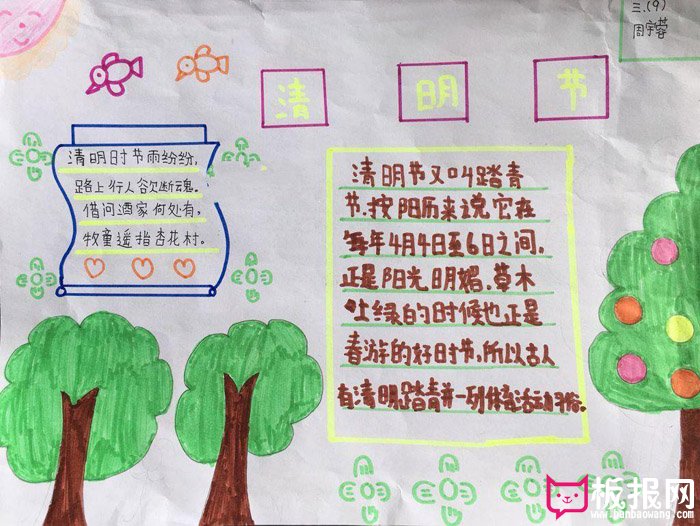 三.(9)
周宇蓉
清 明 节
清明时节雨纷纷,
路上行人欲断魂。
借问酒家何处有,
牧童遥指杏花村。
清明节又叫踏青
节,按阳历来说它在
每年4月4日至6日之间,
正是阳光明媚.草木
吐绿的时候也正是
春游的好时节,所以古人
有清明踏青并一列体育活动习俗。
板报网
www.banbaowang.com